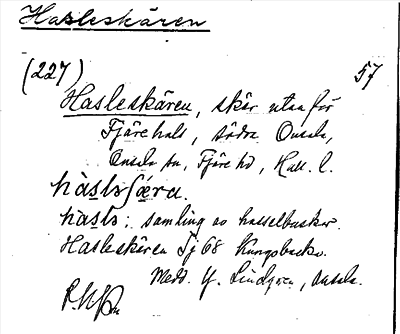 Hasleskären
(227) 57
Hasleskären, skär utanför
Fjärehals, södra Onsala,
Onsala sn, Fjäre hd, Hall. l.
hasls: samling av hasselbuskar.
Hasleskären Tj 68 Kungsbacka.
Medd. Y. Lindgren, Onsala.